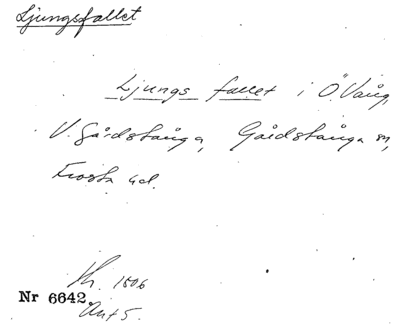 Ljungsfallet
Ljungs fallet i Ö. Vång,
V. Gårdstånga, Gårdstånga sn,
Frosta hd.
Kr. 1806
Nr 6642
Ant 5.